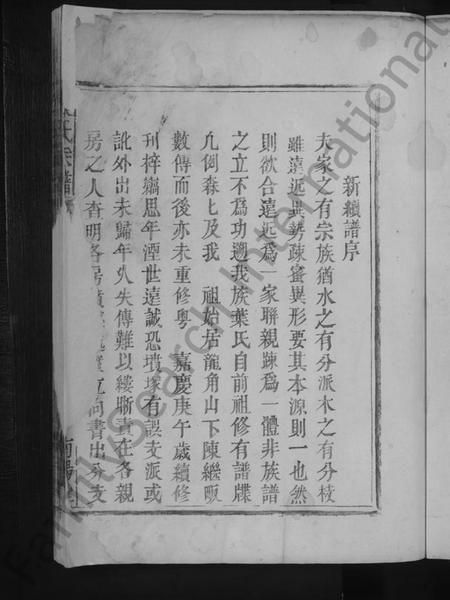 新續譜序
夫家之有宗族猶水之有分派木之有分枝
雖遠近異勢疎蜜異形要其本源則一也然
則欲合遠近為一家聯親疎為一體非族譜
之立不為功遡我族葉氏自前祖修有譜牒
凡例森七及我 祖始居龍角山下陳繼畈
數傳而後亦未重修粤 嘉慶庚午歲續修
刋梓竊思年湮世遠誠恐墳塚有誤支派或
訛外出未歸年久失傳難以縷晰責在各親
房之人查明各房墳 向書出分支
氏宗譜
南陽
FamilySearch International